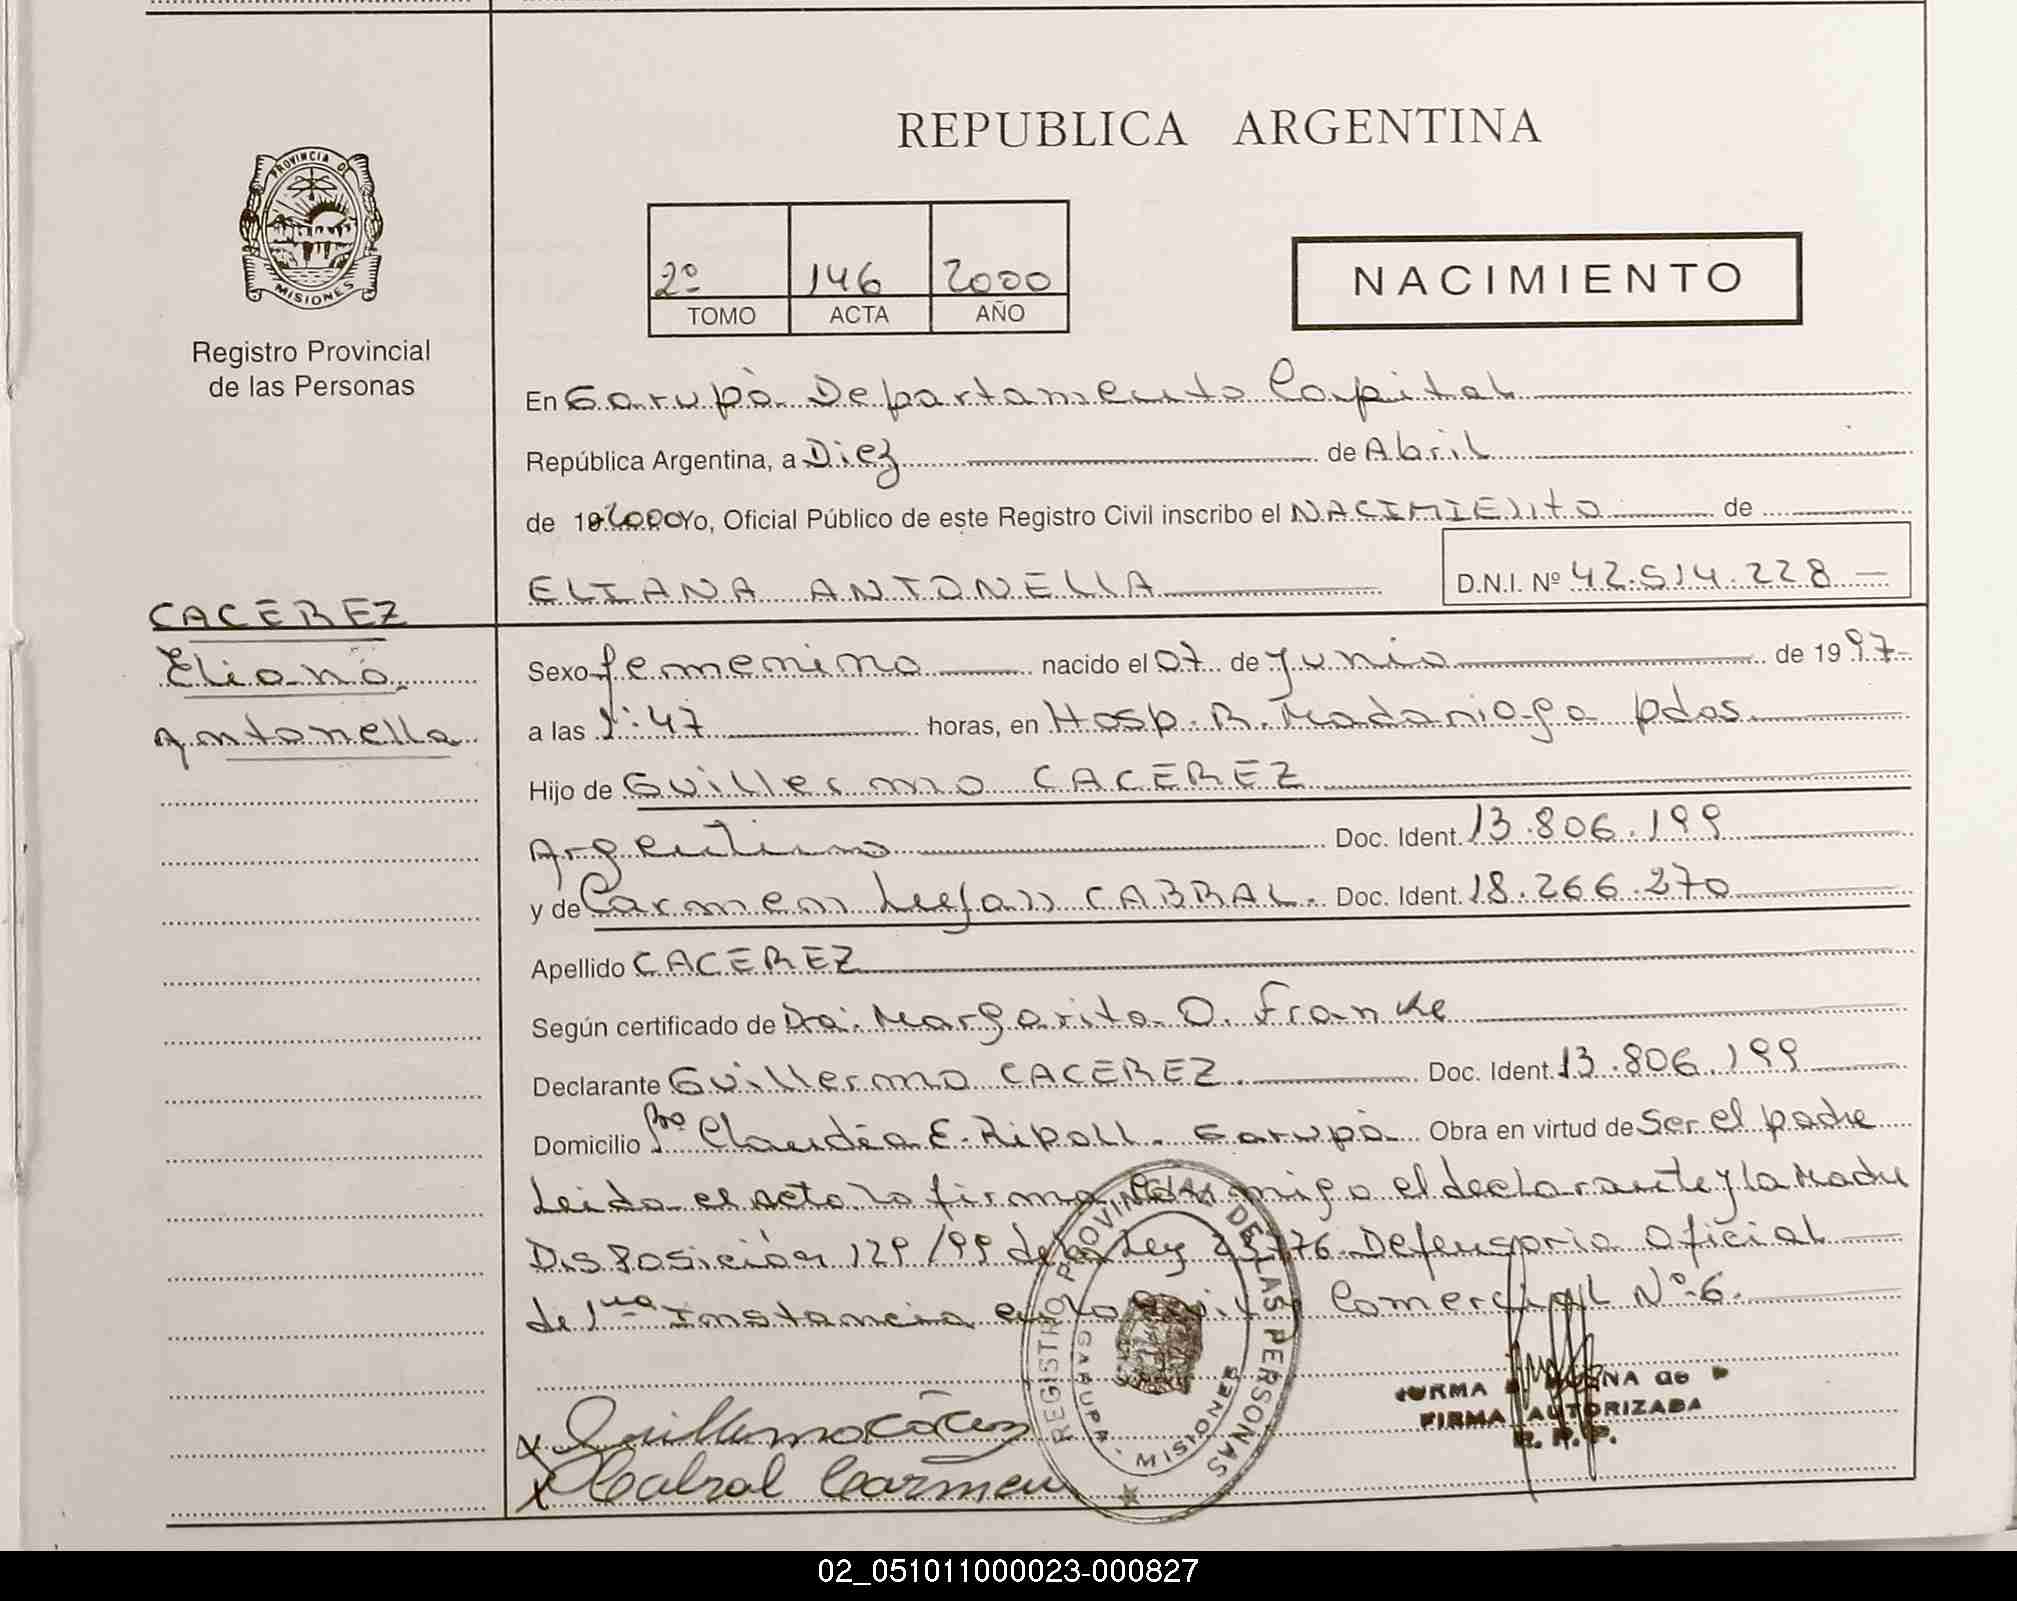 REPUBLICA ARGENTINA
PROVINCIA DE
MISIONES
Registro Provincial
de las Personas
2º 146 2000
TOMO ACTA AÑO
NACIMIENTO
En Garupà Departamento Capital
República Argentina, a Diez de Abril
de 19 2000 Yo, Oficial Público de este Registro Civil inscribo el NACIMIENTO de
ELIANA ANTONELLA D.N.I. Nº 42.514.228
CACEREZ
Eliana
Antonella
Sexo femenino nacido el 07 de Junio de 1997
a las 1:47 horas, en Hosp. R. Madariaga Pdas
Hijo de Guillermo CACEREZ
Argentino Doc. Ident. 13.806.199
y de Carmen Lujan CABRAL. Doc. Ident. 18.266.270
Apellido CACEREZ
Según certificado de Dra. Margarita O. Franke
Declarante Guillermo CACEREZ. Doc. Ident. 13.806.199
Domicilio Bº Claudia E. Ripoll. Garupà Obra en virtud de Ser el padre
Leida el acta la firma conmigo el declarante y la Madre
Disposición 129/99 de la Ley Defensoria Oficial
de 1ra Instancia en lo Civil y Comercial Nº 6.
REGISTRO PROVINCIAL DE LAS PERSONAS
GARUPA - MISIONES
Guillermo Cácerez
Cabral Carmen
NORMA
FIRMA AUTORIZADA
R. P. P.
02_051011000023-000827